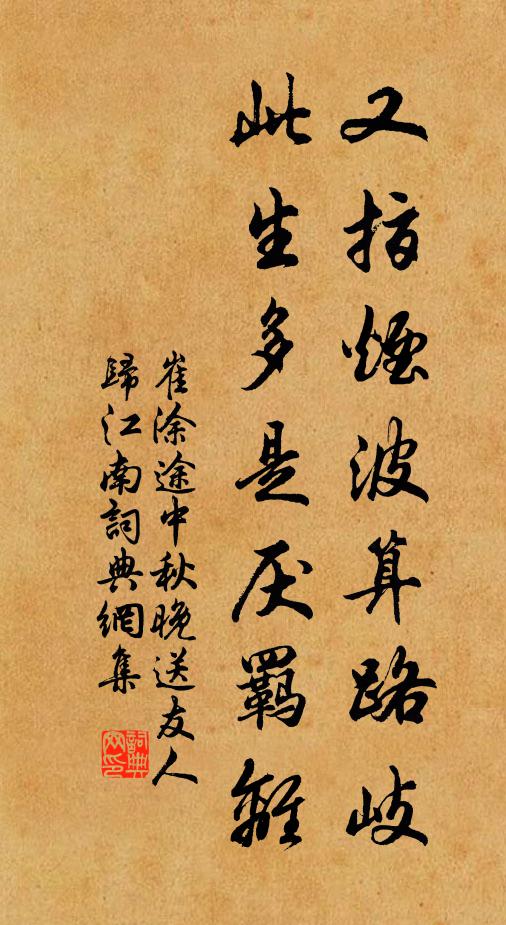 又指煙波算路岐
此生多是厌羈離
崔涂途中秋晚送友人
歸江南詞典網集
詞典网印